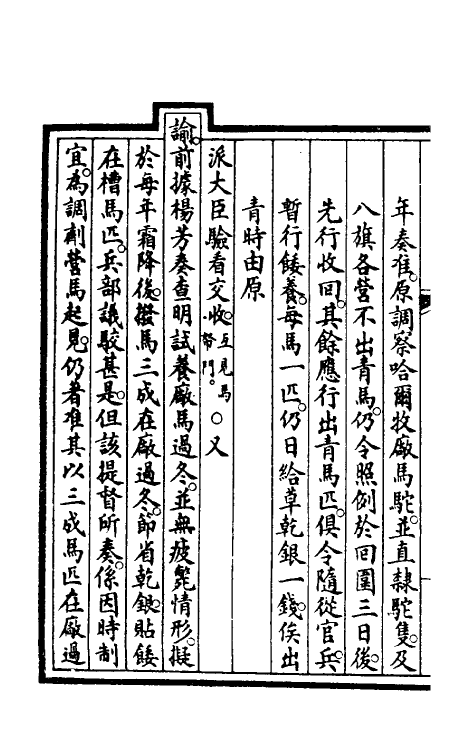 年奏准。原調察哈爾牧廠馬駝。並直隸駝隻。及
八旗各營不出青馬。仍令照例於回圍三日後。
先行收回。其餘應行出青馬匹。俱令隨從官兵。
暫行餧養。每馬一匹。仍日給草乾銀一錢。俟出
青時由原
派大臣驗看交收。互見馬幣門。○又
諭。前據楊芳奏查明試養廠馬過冬。並無疲斃情形。擬
於每年霜降後。撥馬三成在廠過冬。節省乾銀。貼餧
在槽馬匹。兵部議駮甚是。但該提督所奏。係因時制
宜。為調劑營馬起見。仍著准其以三成馬匹在廠過